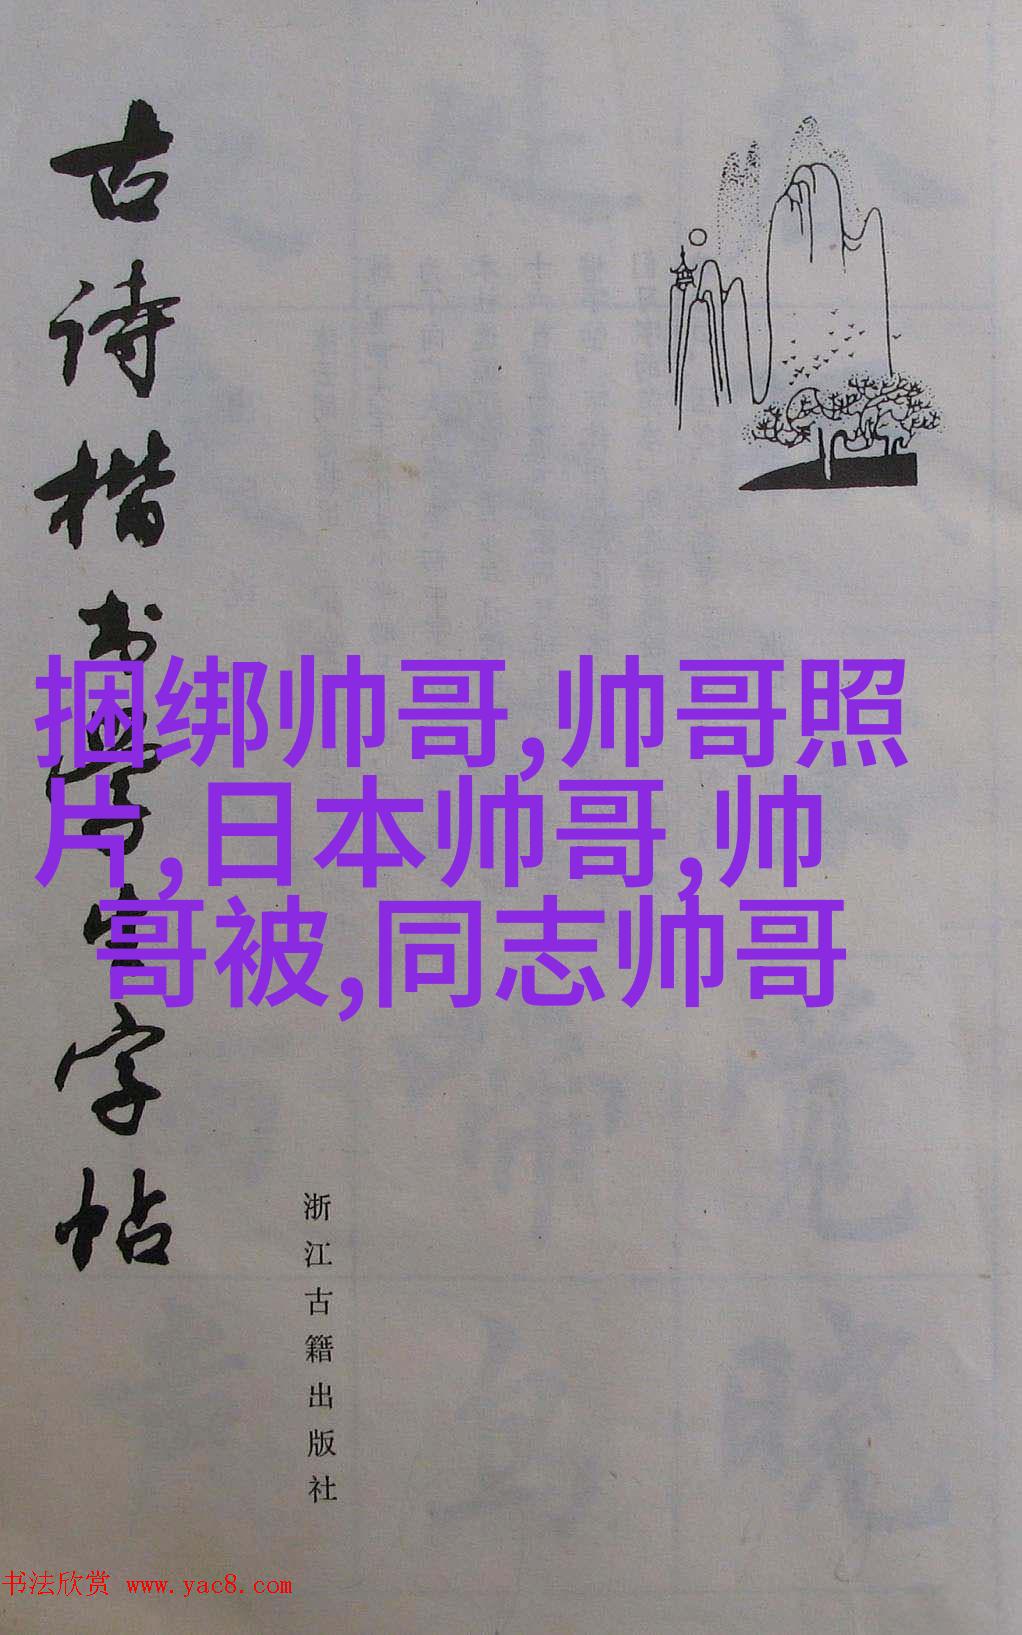 古诗楷书学生字帖
捆绑帅哥,帅哥照
片,日本帅哥,帅
哥被,同志帅哥
浙江古籍出版社
书法欣赏 www.yac8.com